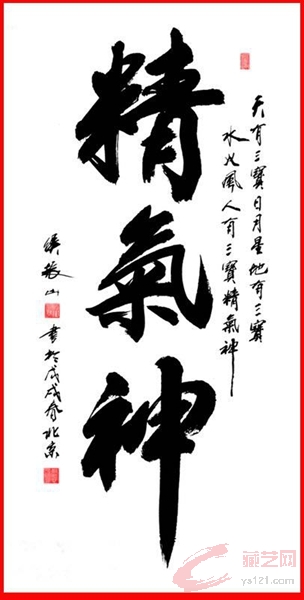 天有三寶日月星地有三寶
水火風人有三寶精氣神
精氣神
山
書於戊戌春北京
藏艺网
ys121.com